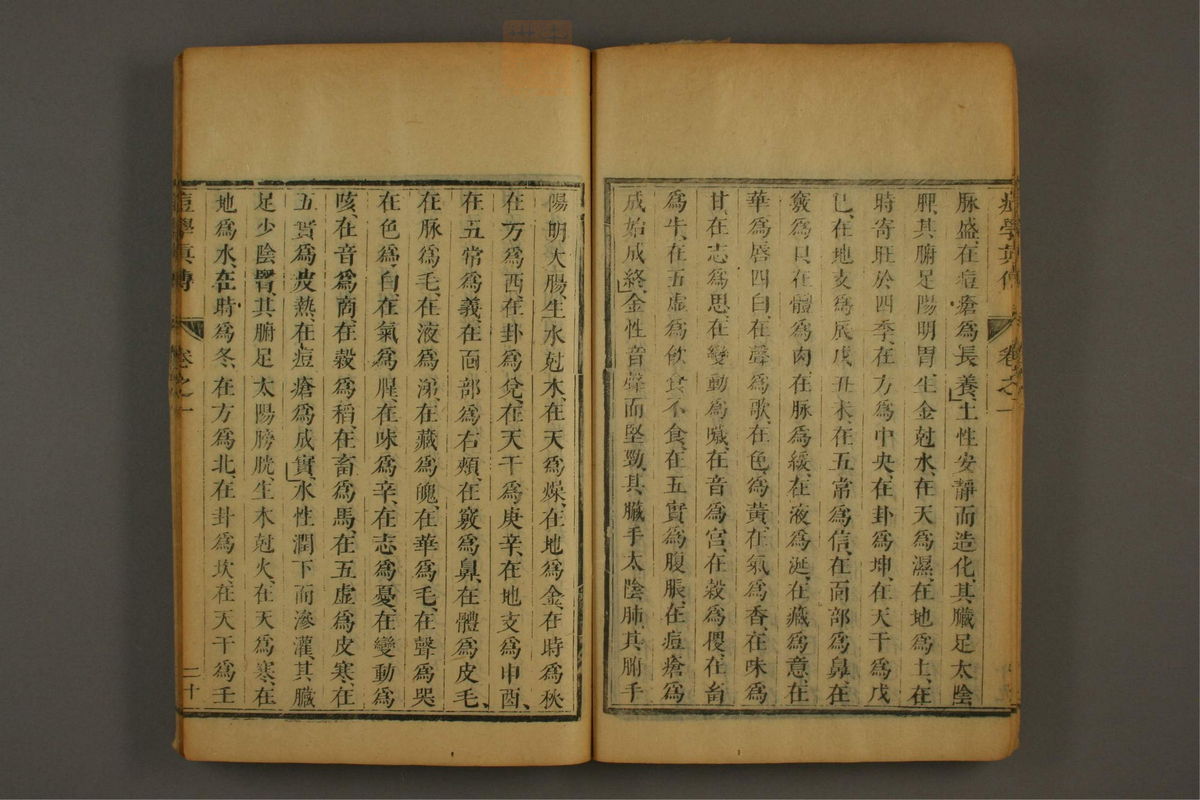 痘學真傳 卷之一
脉盛、在痘瘡爲長養、土性安靜而造化、其臟足太陰
脾、其腑足陽明胃、生金尅水、在天爲濕、在地爲土、在
時寄旺於四季、在方爲中央、在卦爲坤、在天干爲戊
己、在地支爲辰戌丑未、在五常爲信、在面部爲鼻、在
竅爲口、在體爲肉、在脉爲緩、在液爲涎、在藏爲意、在
華爲唇四白、在聲爲歌、在色爲黃、在氣爲香、在味爲
甘、在志爲思、在變動爲噦、在音爲宮、在穀爲稷、在畜
爲牛、在五虛爲飲食不食、在五實爲腹脹、在痘瘡爲
成始成終、金性音聲而堅勁、其臟手太陰肺、其腑手
陽明大腸、生水尅木、在天爲燥、在地爲金、在時爲秋、
在方爲西、在卦爲兌、在天干爲庚辛、在地支爲申酉、
在五常爲義、在面部爲右頰、在竅爲鼻、在體爲皮毛、
在脉爲毛、在液爲涕、在藏爲魄、在華爲毛、在聲爲哭、
在色爲白、在氣爲腥、在味爲辛、在志爲憂、在變動爲
咳、在音爲商、在穀爲稻、在畜爲馬、在五虛爲皮寒、在
五實爲皮熱、在痘瘡爲成實、水性潤下而滲灌、其臟
足少陰腎、其腑足太陽膀胱、生木尅火、在天爲寒、在
地爲水、在時爲冬、在方爲北、在卦爲坎、在天干爲壬
痘學真傳 卷之一 二十